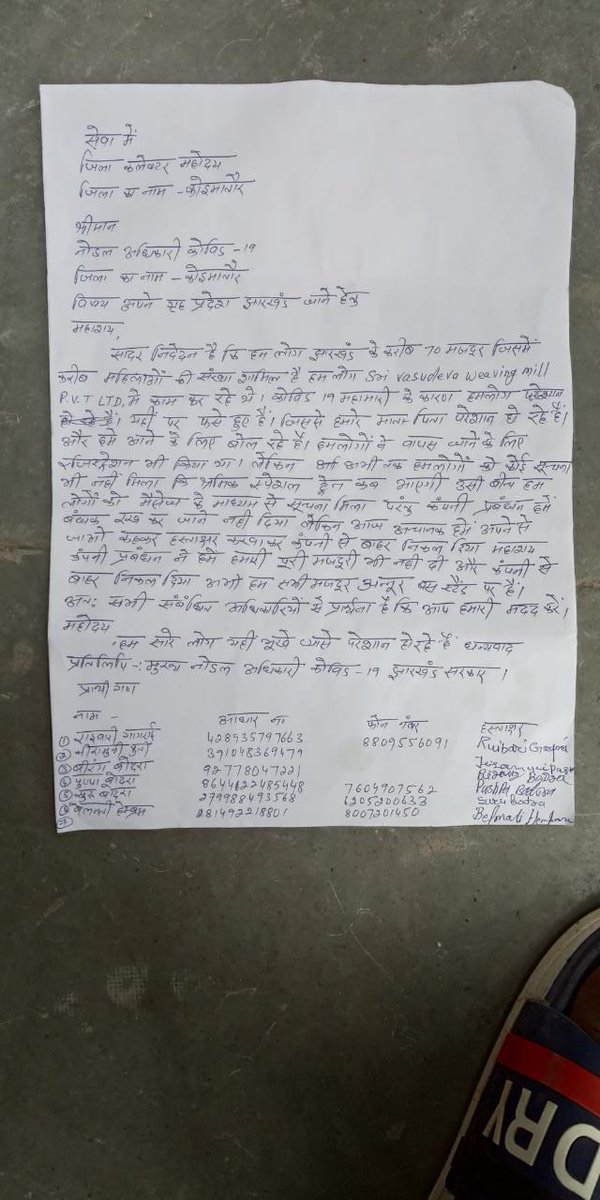 सेवा में
जिला कलेक्टर महोदय
जिला का नाम - कोइमबातौर
श्रीमान
नोडल अधिकारी कोविड -19
जिला का नाम - कोइमबातौर
विषय अपने गृह प्रदेश झारखंड जाने हेतु
महाशय,
सादर निवेदन है कि हम लोग झारखंड के करीब 70 मजदूर जिसमें
करीब महिलाओं की संख्या शामिल है हम लोग Sri vasudeva weaving mill
P.V.T LTD. में काम कर रहे थे। कोविड 19 महामारी के कारण हमलोग परेशान
हो रहे हैं। यहीं पर फसे हुए हैं। जिससे हमारे माता पिता परेशान हो रहे हैं।
और हमें आने के लिए बोल रहे हैं। हमलोगों ने वापस जाने के लिए
रजिस्ट्रेशन भी किया था। लेकिन अभी तक हमलोगों को कोई सूचना
भी नहीं मिला कि श्रमिक स्पेशल ट्रेन कब आएगी उसी बीच हम
लोगों को मैसेज के माध्यम से सूचना मिला परंतु कंपनी प्रबंधन हमें
बंधक रख कर जाने नहीं दिया लेकिन आज अचानक हमें अपने से
जाओ कहकर हस्ताक्षर करवाकर कंपनी से बाहर निकाल दिया महाशय
कंपनी प्रबंधन ने हमें हमारी पूरी मजदूरी भी नहीं दी और कंपनी से
बाहर निकाल दिया अभी हम सभी मजदूर अन्नूर बस स्टैंड पर हैं।
अतः सभी संबंधित अधिकारियों से प्रार्थना है कि आप हमारी मदद करें।
महोदय
हम सारे लोग यहाँ भूखे प्यासे परेशान हो रहे हैं धन्यवाद
प्रतिलिपि -: मुख्य नोडल अधिकारी कोविड -19 झारखंड सरकार।
प्रार्थी गण
नाम - आधार नं फोन नंबर हस्ताक्षर
① राइबारी गागराई 428935797663 8809556091 Ruibari Gagrai
② 391048369479
③ बीरंग बोदरा 92778047221 Birang Bodra
④ पुष्पा बोदरा 8644622485448 7604907562 Pushpa Bodra
⑤ सुरू बोदरा 279988493568 6205200633 Suru Bodra
⑥ बेलमती हेम्ब्रम 281492218801 8007201450 Belmati Hembram
⑦
DRY